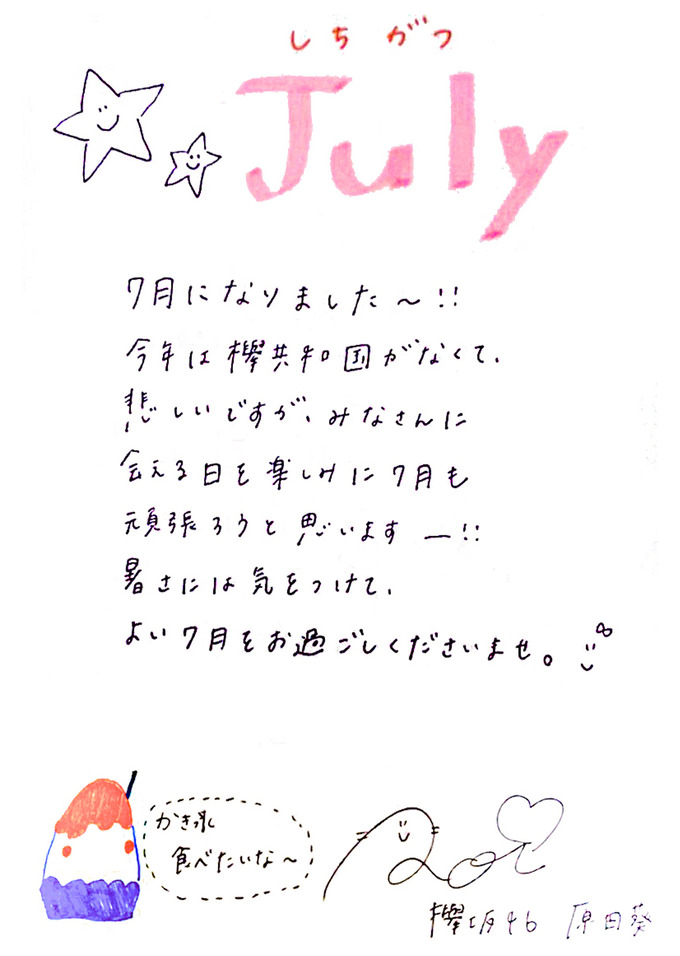 しちがつ
July
7月になりました〜!!
今年は欅共和国がなくて、
悲しいですが、みなさんに
会える日を楽しみに7月も
頑張ろうと思いますー!!
暑さには気をつけて、
よい7月をお過ごしくださいませ。
かき氷
食べたいな〜
Aoi
欅坂46 原田葵